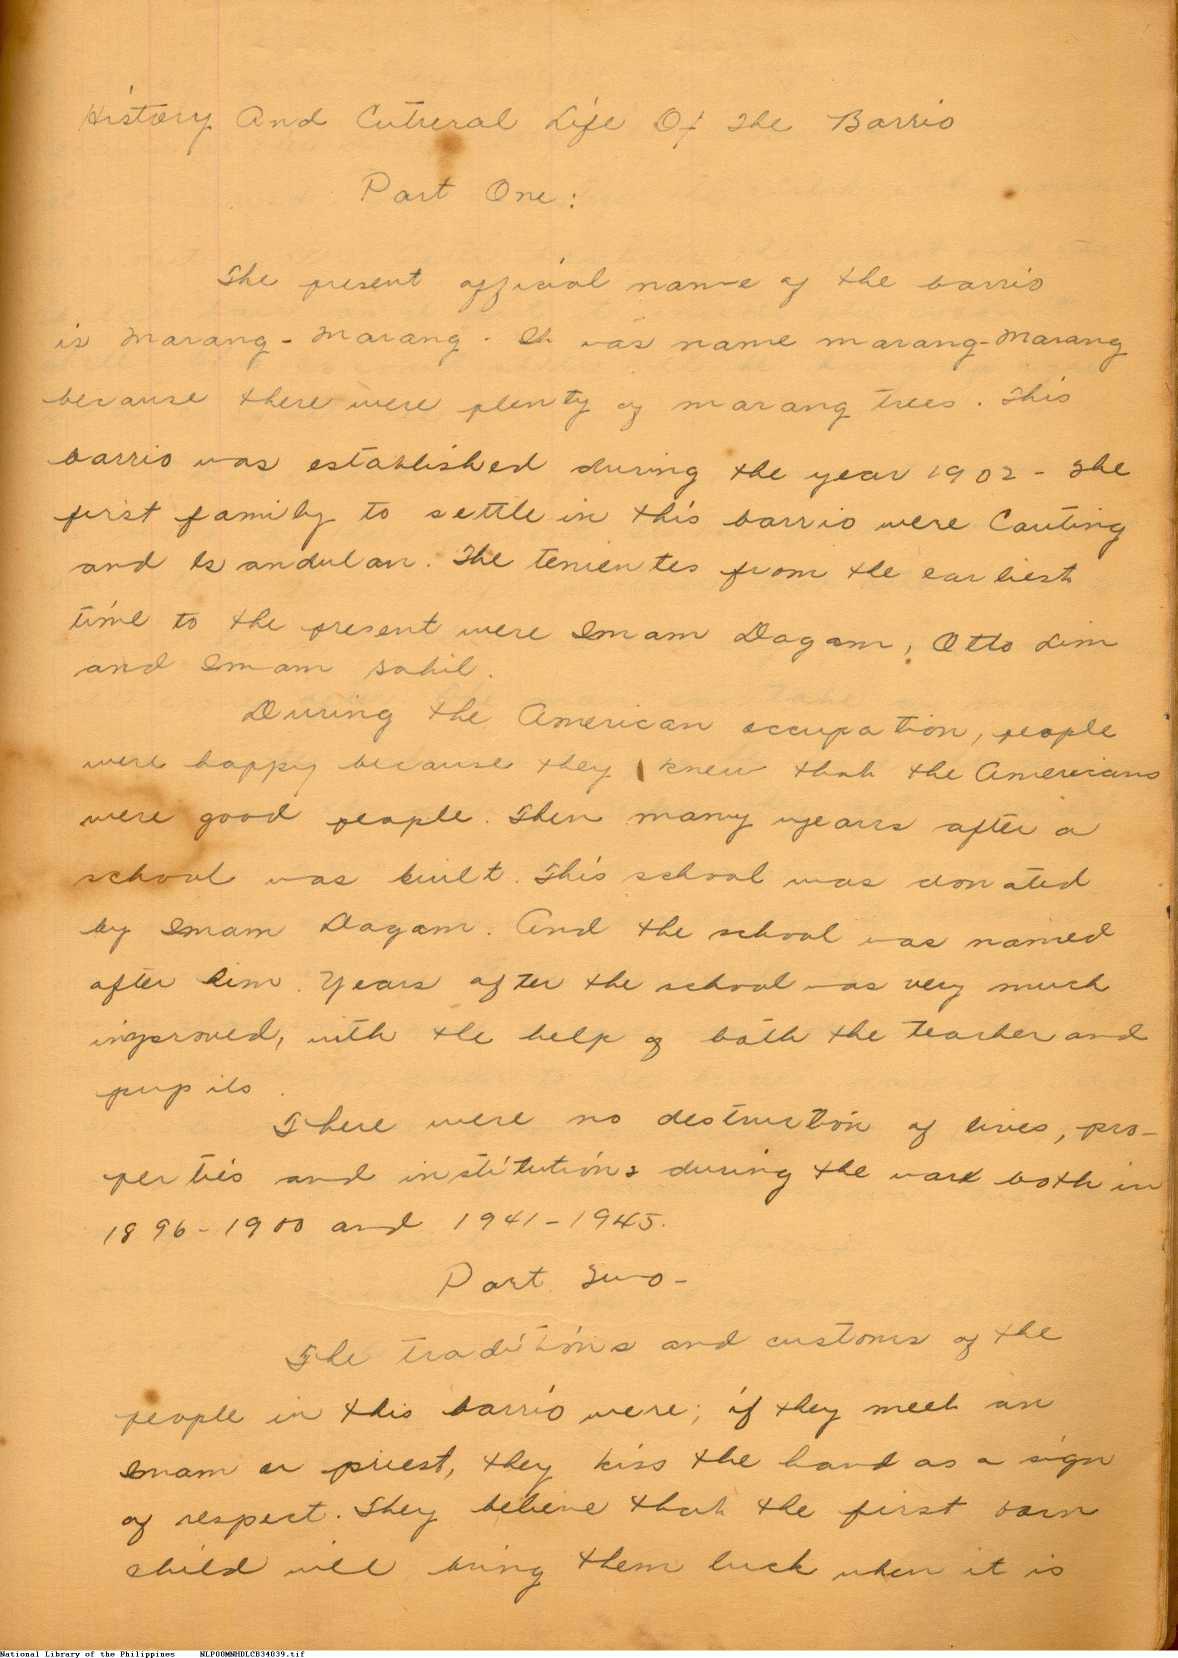 History And Cutreral Life Of The Barrio
Part One:
The present official name of the barrio
is Marang-Marang. It was name marang-Marang
because there were plenty of marang trees. This
barrio was established during the year 1902 - The
first family to settle in this barrio were Cauting
and Isandulan. The tenientes from the earliest
time to the present were Imam Dagam, Otto Lim
and Imam Sahil.
During the American occupation, people
were happy because they knew that the Americans
were good people. Then many years after a
school was built. This school was donated
by Imam Dagam. And the school was named
after Lim. Years after the school was very much
improved, with the help of both the teacher and
pupils.
There were no destruction of lives, pro-
perties and institutions during the war both in
1896-1900 and 1941-1945.
Part Two-
The traditions and customs of the
people in this barrio were; if they meet an
Imam or priest, they kiss the hand as a sign
of respect. They believe that the first born
child will bring them luck when it is
National Library of the Philippines NLPOOMNHDLCB34039.tif